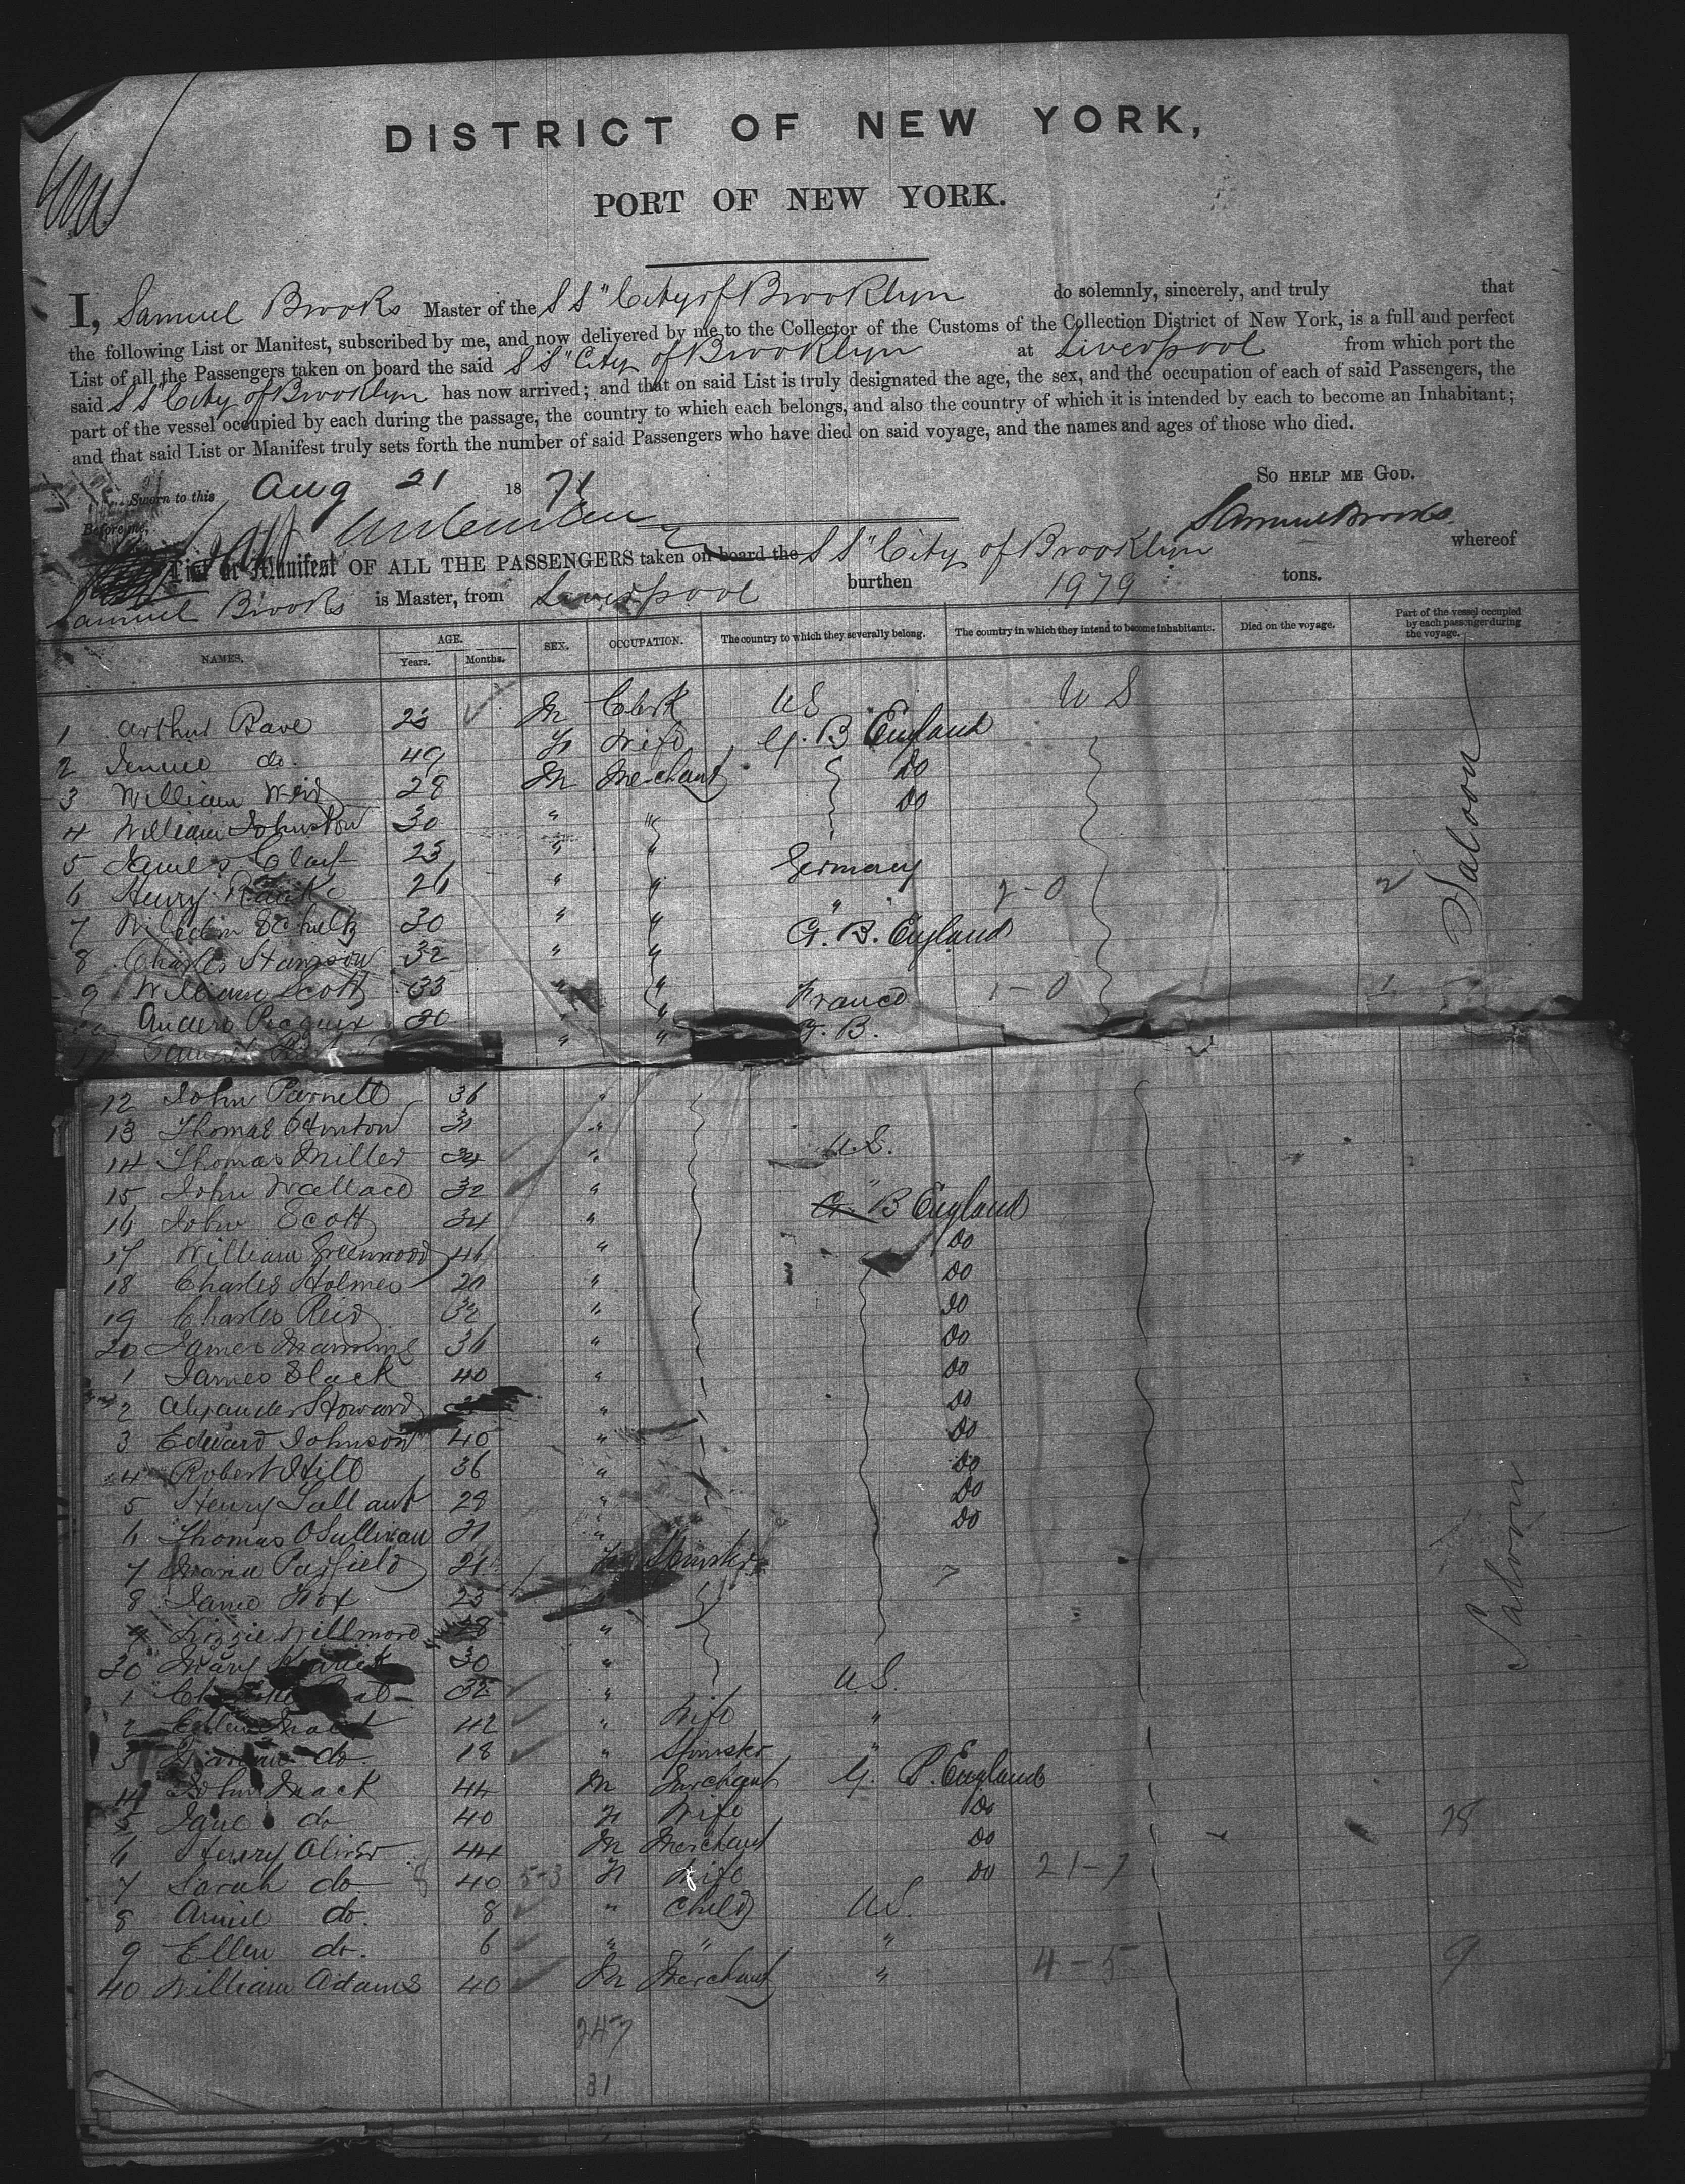 DISTRICT OF NEW YORK,
PORT OF NEW YORK.
I, Samuel Brooks Master of the SS "City of Brooklyn do solemnly, sincerely, and truly that
the following List or Manifest, subscribed by me, and now delivered by me to the Collector of the Customs of the Collection District of New York, is a full and perfect
List of all the Passengers taken on board the said SS "City of Brooklyn at Liverpool from which port the
said SS "City of Brooklyn has now arrived; and that on said List is truly designated the age, the sex, and the occupation of each of said Passengers, the
part of the vessel occupied by each during the passage, the country to which each belongs, and also the country of which it is intended by each to become an Inhabitant;
and that said List or Manifest truly sets forth the number of said Passengers who have died on said voyage, and the names and ages of those who died.
SO HELP ME GOD.
Sworn to this Aug 21 1871
Samuel Brooks
Before me,
List or Manifest OF ALL THE PASSENGERS taken on board the SS "City of Brooklyn whereof
Samuel Brooks is Master, from Liverpool burthen 1979 tons.
NAMES. AGE. Years. Months. SEX. OCCUPATION. The country to which they severally belong. The country in which they intend to become inhabitants. Died on the voyage. Part of the vessel occupied by each passenger during the voyage.
1 Arthur M Clerk US U S
2 Jennie do. 49 F Wife G. B England
3 William Weir 28 M Merchant Do
4 William Johnston 30 " " Do
5 James 25 " "
6 Henry 26 " " Germany
7 Wilhelm Schultz 30 " " " 2-0 2
8 Charles 32 " " G. B. England
9 William Scott 33 " "
10 30 " " France 1-0 1
11 Samuel " " G. B.
Saloon
12 John Parnell 36 "
13 Thomas 31 "
14 Thomas Miller 34 " U.S.
15 John Wallace 32 " "
16 John Scott 34 " G. B England
17 William Greenwood 46 " Do
18 Charles Holmes 20 " Do
19 Charles Reid 32 " Do
20 James 36 " Do
1 James Black 40 " Do
2 Alexander Howard " Do
3 Edward Johnson 40 " Do
4 Robert Hill 36 " Do
5 Henry 29 " Do
6 Thomas OSullivan 31 " Do
7 Maria 21 F Spinster
8 Jane Fox 23
9 Lizzie Willmore 28 "
30 Mary 30 "
1 32 " U.S.
2 Ellen 42 " Wife "
3 do. 18 " Spinster "
4 John Mack 44 M Merchant G. B. England
5 Jane do 40 F Wife Do
6 Henry Oliver 44 M Merchant Do 28
7 Sarah do 40 5-3 F Wife Do 21-7
8 Annie do. 8 " Child U.S.
9 Ellen do. 6 " " "
40 William Adams 40 M Merchant " 4-5 9
Saloon
247
31